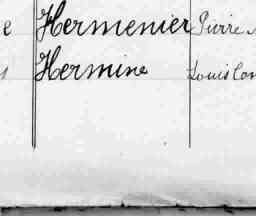 Hermenier Pierre
Hermine Louis